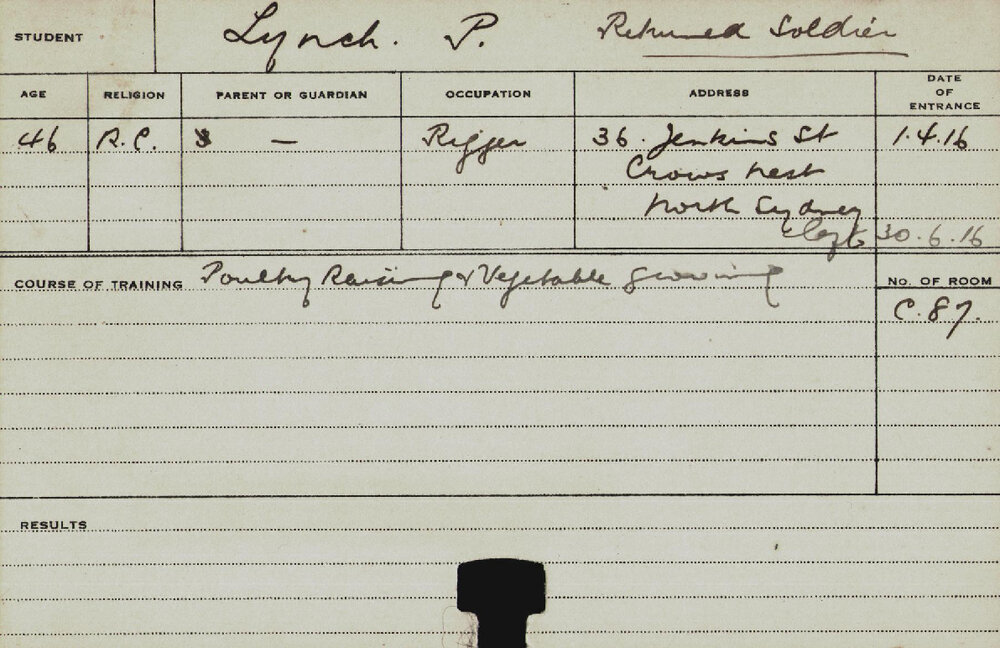 STUDENT Lynch. P. Returned Soldier
AGE RELIGION PARENT OR GUARDIAN OCCUPATION ADDRESS DATE OF ENTRANCE
46 R.C. — Rigger 36. Jenkins St 1.4.16
Crows nest
North Sydney
Left 30.6.16
COURSE OF TRAINING Poultry Raising & Vegetable growing
NO. OF ROOM
C.87.
RESULTS